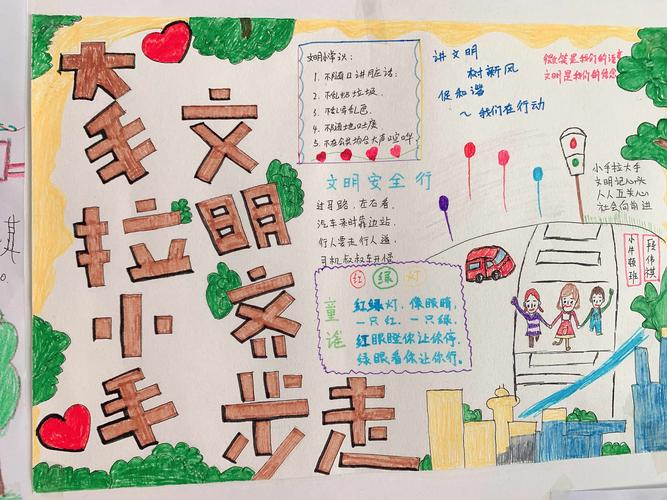 大手拉小手
文明齐步走
文明小常识：
1. 不随口讲脏话；
2. 不乱扔垃圾.
3. 不乱穿乱爬.
4. 不随地吐痰
5. 不在公共场合大声喧哗
讲文明
树新风
促和谐
~ 我们在行动
微笑是我们的语言
文明是我们的信念
文明安全行
过马路，左右看.
汽车来时靠边站.
行人要走行人道.
司机叔叔车开慢
红绿灯
童谣
红绿灯，像眼睛，
一只红，一只绿.
红眼瞪你让你停，
绿眼看你让你行。
小手拉大手
文明记心头
人人五关心
社会向前进
小牛顿班
段伟祺